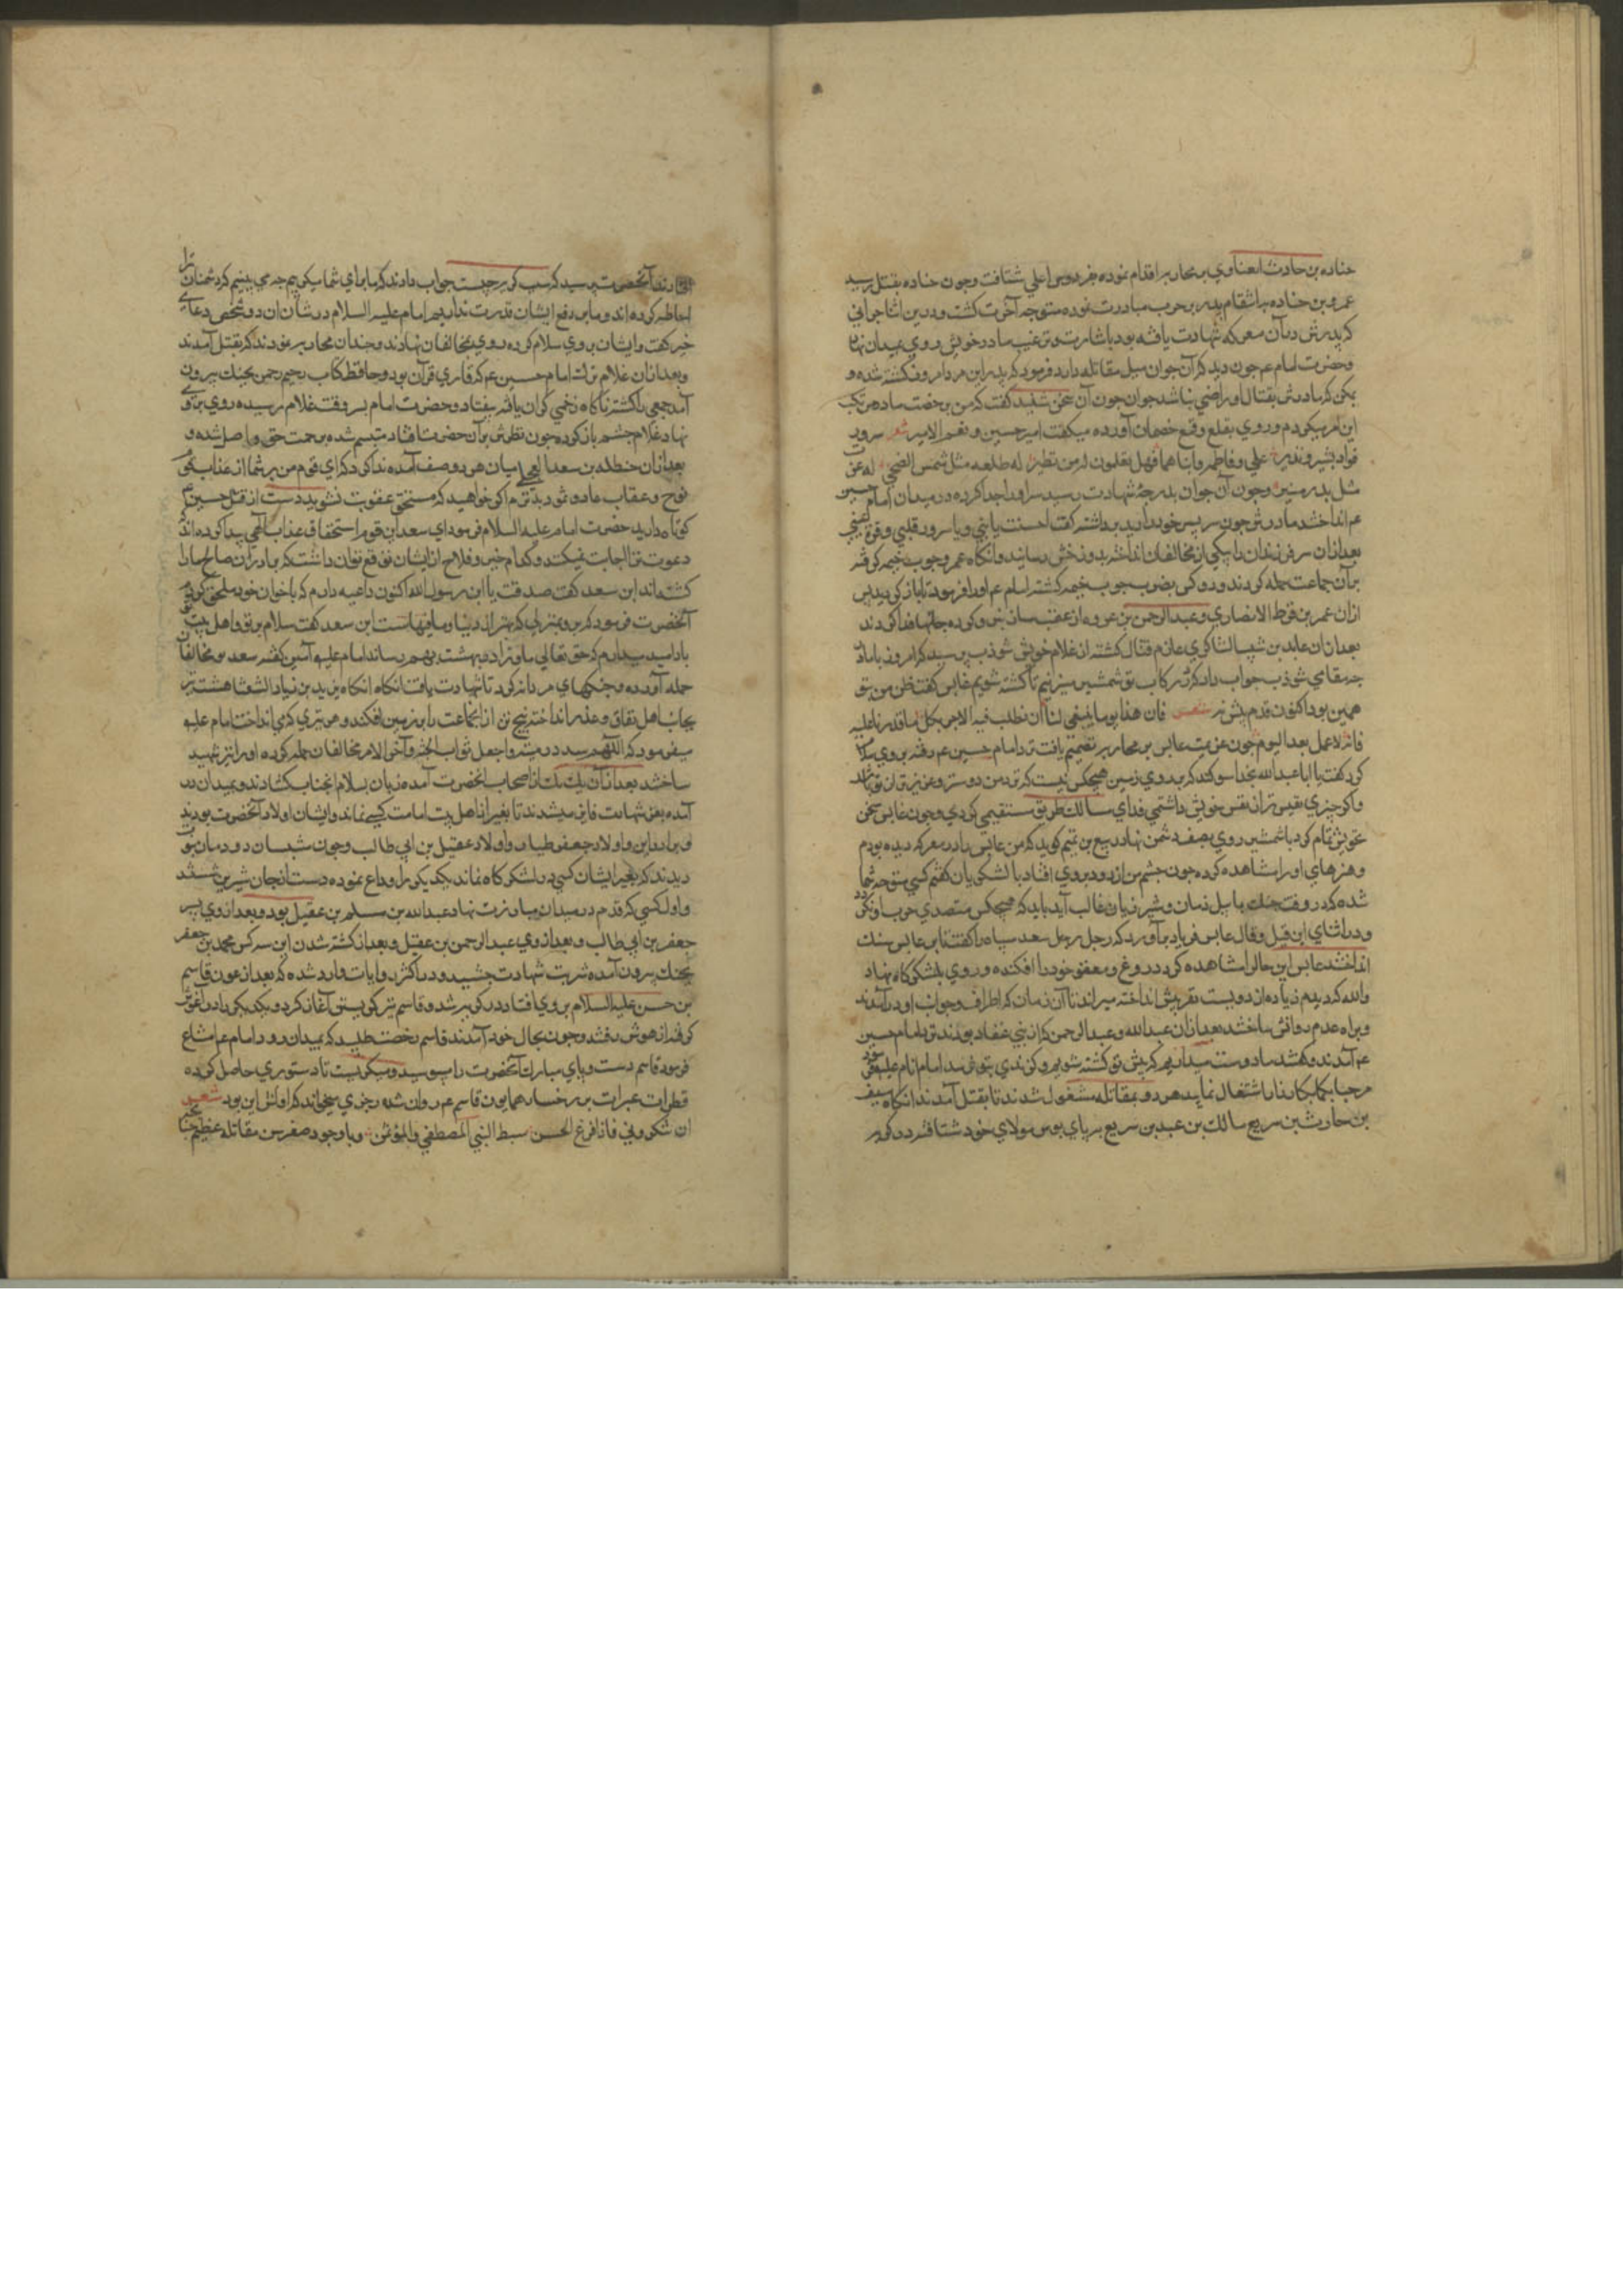 جناده بن حادث بمحاربه اقدام نموده بفردوس اعلي شتافت وجون جناده بقتل رسيد
عمرو بن جناده به انتقام پدر بر حرب مبادرت نموده متوجه آخرت كشت ودرين اثنا جواني
كه پدرش در آن معركه شهادت يافته بود باشارت وترغيب مادر خويش روي بميدان نهاد
وحضرت امام عم جون ديد كه آن جوان ميل مقاتله دارد فرمود كه پدر اين مرد امروز كشته شده و
يمكن كه مادرش بقتال او راضي نباشد جوان جون آن سخن شنيد كفت كه من برخصت مادر مرتكب
اين امر ميكردم وروي بقلع وقمع خصمان آورده ميكفت اميري حسين ونعم الامير شعر سرور
فواد بشير ونذير علي وفاطمه والداهما فهل تعلمون له من نظير له طلعه مثل شمس الضحي له غرت
مثل بدر منير وجون آن جوان بدرجهٔ شهادت رسيد سر او را جدا كرده در ميدان امام حسين
عم انداختند مادرش جون سر پسر خود را ديد برداشته كفت احسنت يا بني ويا سرور قلبي وقرة عيني
بعد از ان سر فرزند را بر يكي از مخالفان انداخته بدوزخش رسانيد وانكاه عمود جوب خيمه كرفته
بر آن جماعت حمله كرد ودو كس بضرب جوب خيمه كشته امام عم او را فرمود تا باز كرديد پس
از ان عمر بن قرط الانصاري وعبد الرحمن بن عروه از عقب جانها فدا كردند
بعد از ان عابد بن شبيب الشاكري عازم قتال كشته از غلام خويش شوذب پرسيد كه امروز با ما در
جه مقامي شوذب جواب داد كه در ركاب تو شمشير ميزنيم تا كشته شويم عابس كفت ظن من بتو
همين بود اكنون قدم پيش نه شعر فان هذا يوما ينبغي لنا ان نطلب فيه الاجر بكل ما قدرنا عليه
فانه لا عمل بعد اليوم جون عزيمت عابس بن محاربه تصميم يافت نزد امام حسين عم رفته بر وي سلام
كرد كفت يا ابا عبد الله بخدا سوكند كه بر روي زمين هيجكس نيست كه نزد من دوستر وعزيزتر از تو باشد
واكر جيزي نفيس تر از نفس خويش داشتمي فداي سالك طريق مستقيمي كردي وجون عابس سخن
خويش تمام كرد با شمشير روي بصف دشمن نهاد ربيع بن تميم كويد كه من عابس را در معركه ديده بودم
وهنرهاي او را مشاهده كرده جون جشم من از دور بر وي افتاد با لشكريان كفتم كسي متوجه شما
شده كه در وقت جنك با پيل دمان وشير ژيان غالب آيد بايد كه هيجكس متصدي حرب او نكردد
ودر اثناي اين قيل وقال عابس فرياد برآورد كه رجل رجل سعد سپاه را كفت تا بر عابس سنك
انداختند عابس اين حال را مشاهده كرده درع ومغفر خود را افكنده وروي بلشكركاه نهاد
والله كه ديدم زياده از دويست نفر پيش انداخته ميراند تا آن زمان كه از اطراف وجوانب او در آمدند
وبراه عدم روانش ساختند بعد از ان عبد الله وعبد الرحمن كه از بني غفار بودند نزد امام حسين
عم آمدند وكفتند ما دوست ميداريم كه پيش تو كشته شويم وكزندي بتو نرسد امام انام عليه
مرحبا بكما بكارزار اشتغال نماييد هر دو بمقاتله مشغول شدند تا بقتل آمدند انكاه سيف
بن حارث بن سريع مالك بن عبد بن سريع بر پاي بوس مولاي خود شتافتند در كريه
آنحضرت پرسيد كه سبب كريه جيست جواب دادند كه ما براي شما ميكرييم جه مي بينيم كه دشمنان ترا
احاطه كرده اند وما بر دفع ايشان قدرت نداريم امام عليه السلام در شان ان دو شخص دعاي
خير كفت وايشان بر وي سلام كرده روي بمخالفان نهادند وجندان محاربه نمودند كه بقتل آمدند
وبعد از ان غلام ترك امام حسين عم كه قاري قرآن بود وحافظ كتاب رحيم رحمن بجنك بيرون
آمد جمعي را كشته ناكاه زخمي كران يافته بيفتاد وحضرت امام بسر وقت غلام رسيده روي بر روي
نهاد غلام جشم باز كرده جون نظرش بر آن حضرت افتاد متبسم شده برحمت حق واصل شده و
بعد از ان حنظله بن سعد العجلي ميان هر دو صف آمده ندا كرد كه اي قوم من بر شما از عذاب
نوح وعقاب عاد وثمود مي ترسم اكر خواهيد كه مستحق عقوبت نشويد دست از قتل حسين عم
كوتاه داريد حضرت امام عليه السلام فرمود اي سعد اين قوم استحقاق عذاب الهي پيدا كرده اند كه
دعوت ترا اجابت نميكنند وكدام خير وفلاح از ايشان توقع توان داشت كه برادران صالح ما را
كشته اند ابن سعد كفت صدقت يا ابن رسول الله اكنون داعيه دارم كه باخوان خود ملحق كردم
آنحضرت فرمود كه برو بمنزلي كه بهتر از دنيا وما فيهاست ابن سعد كفت سلام بر تو واهل بيت تو
باد اميد ميدارم كه حق تعالي ما وترا در بهشت بهم رساند امام عليه آمين كفته سعد بر مخالفان
حمله آورده وجنكهاي مردانه كرد تا شهادت يافت انكاه يزيد بن زياد الشعثا هشت تير
بجانب اهل نفاق وغدر انداخته پنج تن از ان جماعت را بر زمين افكند وهر تيري كه مي انداخت امام عليه
ميفرمود كه اللهم سدد رميته واجعل ثوابه الجنة وآخر الامر مخالفان حمله كرده او را نيز شهيد
ساختند بعد از آن يك يك از اصحاب آنحضرت آمده زبان بسلام آنجناب كشادند وبميدان در
آمده بعز شهادت فايز ميشدند تا بغير از اهل بيت امامت كسي نماند وايشان اولاد آنحضرت بودند
وبرادران واولاد جعفر طيار واولاد عقيل بن ابي طالب وجون شبان دودمان نبوت
ديدند كه بغير ايشان كسي در لشكركاه نماند يكديكر را وداع نموده دست از جان شيرين شستند
واول كسي كه قدم در ميدان مبارزت نهاد عبد الله بن مسلم بن عقيل بود وبعد از وي پسر
جعفر بن ابي طالب وبعد از وي عبد الرحمن بن عقيل وبعد از كشته شدن اين سه كس محمد بن جعفر
بجنك بيرون آمده شربت شهادت جشيد ودر اكثر روايات وارد شده كه بعد از عون قاسم
بن حسن عليه السلام بر وي افتاد در كريه شد وقاسم نيز كريستن آغاز كرد ويكديكر را در آغوش
كرفته از هوش رفتند وجون بحال خود آمدند قاسم رخصت طلبيد كه بميدان رود امام عم امتناع
فرمود قاسم دست وپاي مبارك آنحضرت را ميبوسيد وميكريست تا دستوري حاصل كرده
قطرات عبرات بر رخسار همايون قاسم عم روان شده رجزي ميخواند كه اولش اين بود شعر
ان تنكروني فانا فرع الحسن سبط النبي المصطفي والمؤتمن وبا وجود صغر سن مقاتله عظيم